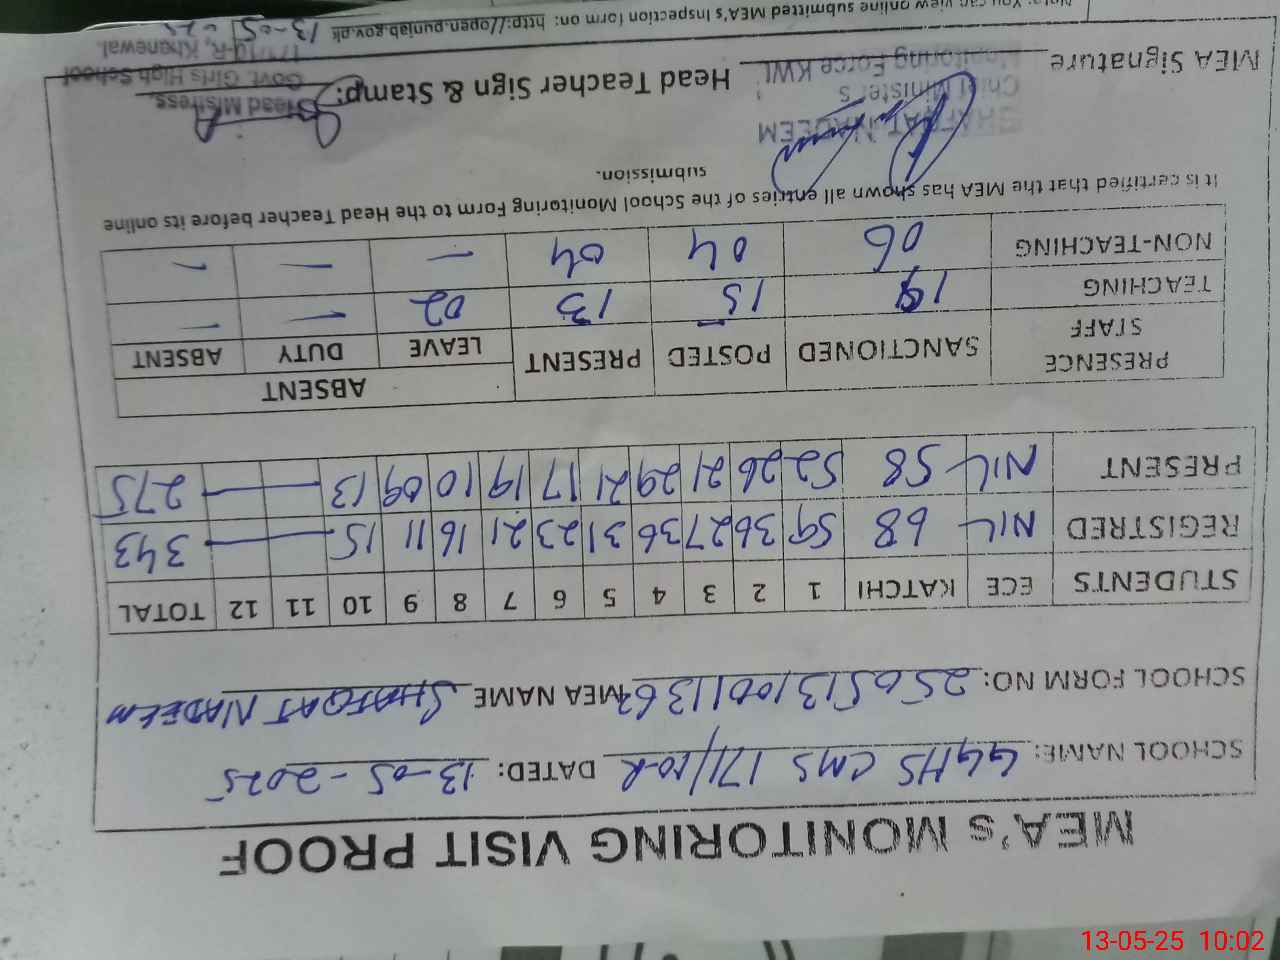 MEA's MONITORING VISIT PROOF
SCHOOL NAME: GGHS CMS 171/10-R DATED: 13-05-2025
SCHOOL FORM NO: MEA NAME SHAFQAT NADEEM
STUDENTS ECE KATCHI 1 2 3 4 5 6 7 8 9 10 11 12 TOTAL
REGISTRED NIL 68 59 36 27 36 31 23 21 16 11 15 — 343
PRESENT NIL 58 52 26 21 29 21 17 19 10 09 13 — 275
PRESENCE STAFF SANCTIONED POSTED PRESENT ABSENT
LEAVE DUTY ABSENT
TEACHING 15 13 02 — —
NON-TEACHING 06 04 04 — — —
It is certified that the MEA has shown all entries of the School Monitoring Form to the Head Teacher before its online
submission.
SHAFQAT NADEEM
Chief Minister's
Monitoring Force KWL
MEA Signature Head Teacher Sign & Stamp:
Head Mistress,
Govt. Girls High School
171/10-R, Khanewal.
13-05-25
Note: You can view online submitted MEA's Inspection form on: http://open.punjab.gov.pk
13-05-25 10:02